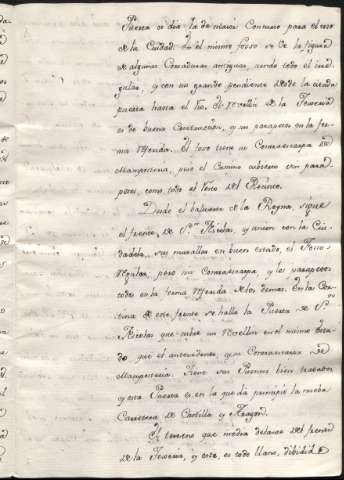 Puerta es dia la de mayor Concurso para el
de la Ciudad. En el mismo fosso se ve la figura
de algunas Cortaduras antiguas, siendo todo el irre
gular, y con un grande pendiente desde la citada
puerta hasta el Rio. El Revellin de la Texeria
es de buena Construccion, y su parapeto en la for
ma referida. El foso tiene su Contraescarpa de
Mamposteria, pero el Camino cubierto sin para
petos, como todo el resto del Recinto.
Desde el baluarte de la Reyna, sigue
el frente de Sn. Nicolas, y union con la Ciu
dadela, sus murallas en buen estado, el Foso
regular, pero sin Contraescarpa, y los parapetos
todos en la forma referida de los demas. En la Cor
tina de este frente se halla la Puerta de Sn.
Nicolas que cubre un Revellin en el mismo esta
do que el antecedente, y su Contraescarpa de
Mamposteria. Tiene sus Puentes bien tratados
y esta Puerta es en la que dá principio la nueba
Carretera de Castilla y Aragon.
El terreno que media delante del frente
de la Texeria, y este, es todo llano, dibidido